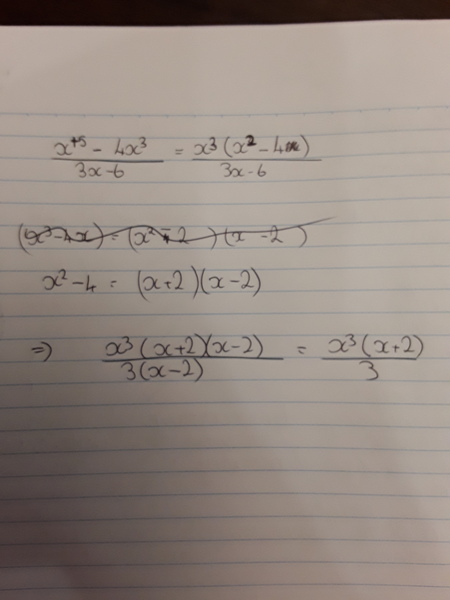 x⁵ - 4x³ / 3x-6 = x³(x² - 4) / 3x-6
x² - 4 = (x+2)(x-2)
⇒ x³(x+2)(x-2) / 3(x-2) = x³(x+2) / 3